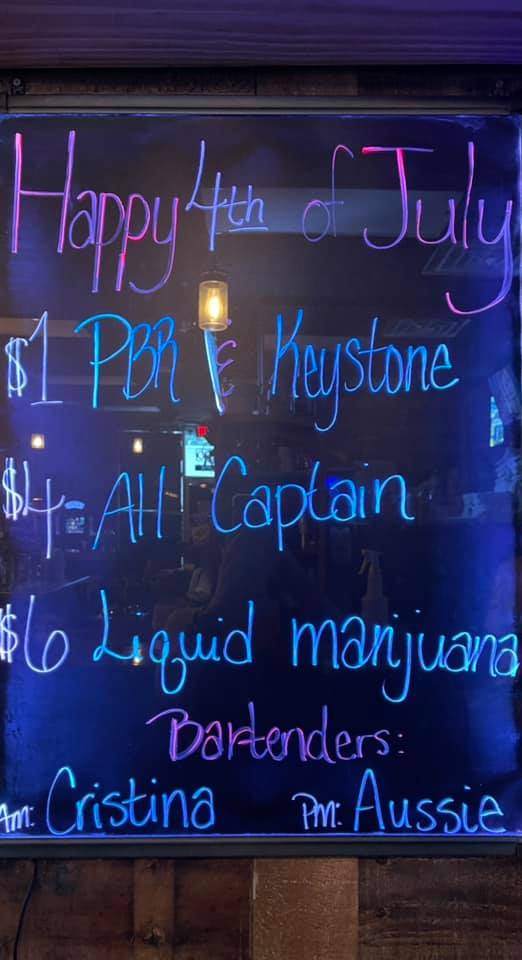 Happy 4th of July
$1 PBR & Keystone
$4 All Captain
$6 Liquid marijuana
Bartenders:
Am: Cristina Pm: Aussie